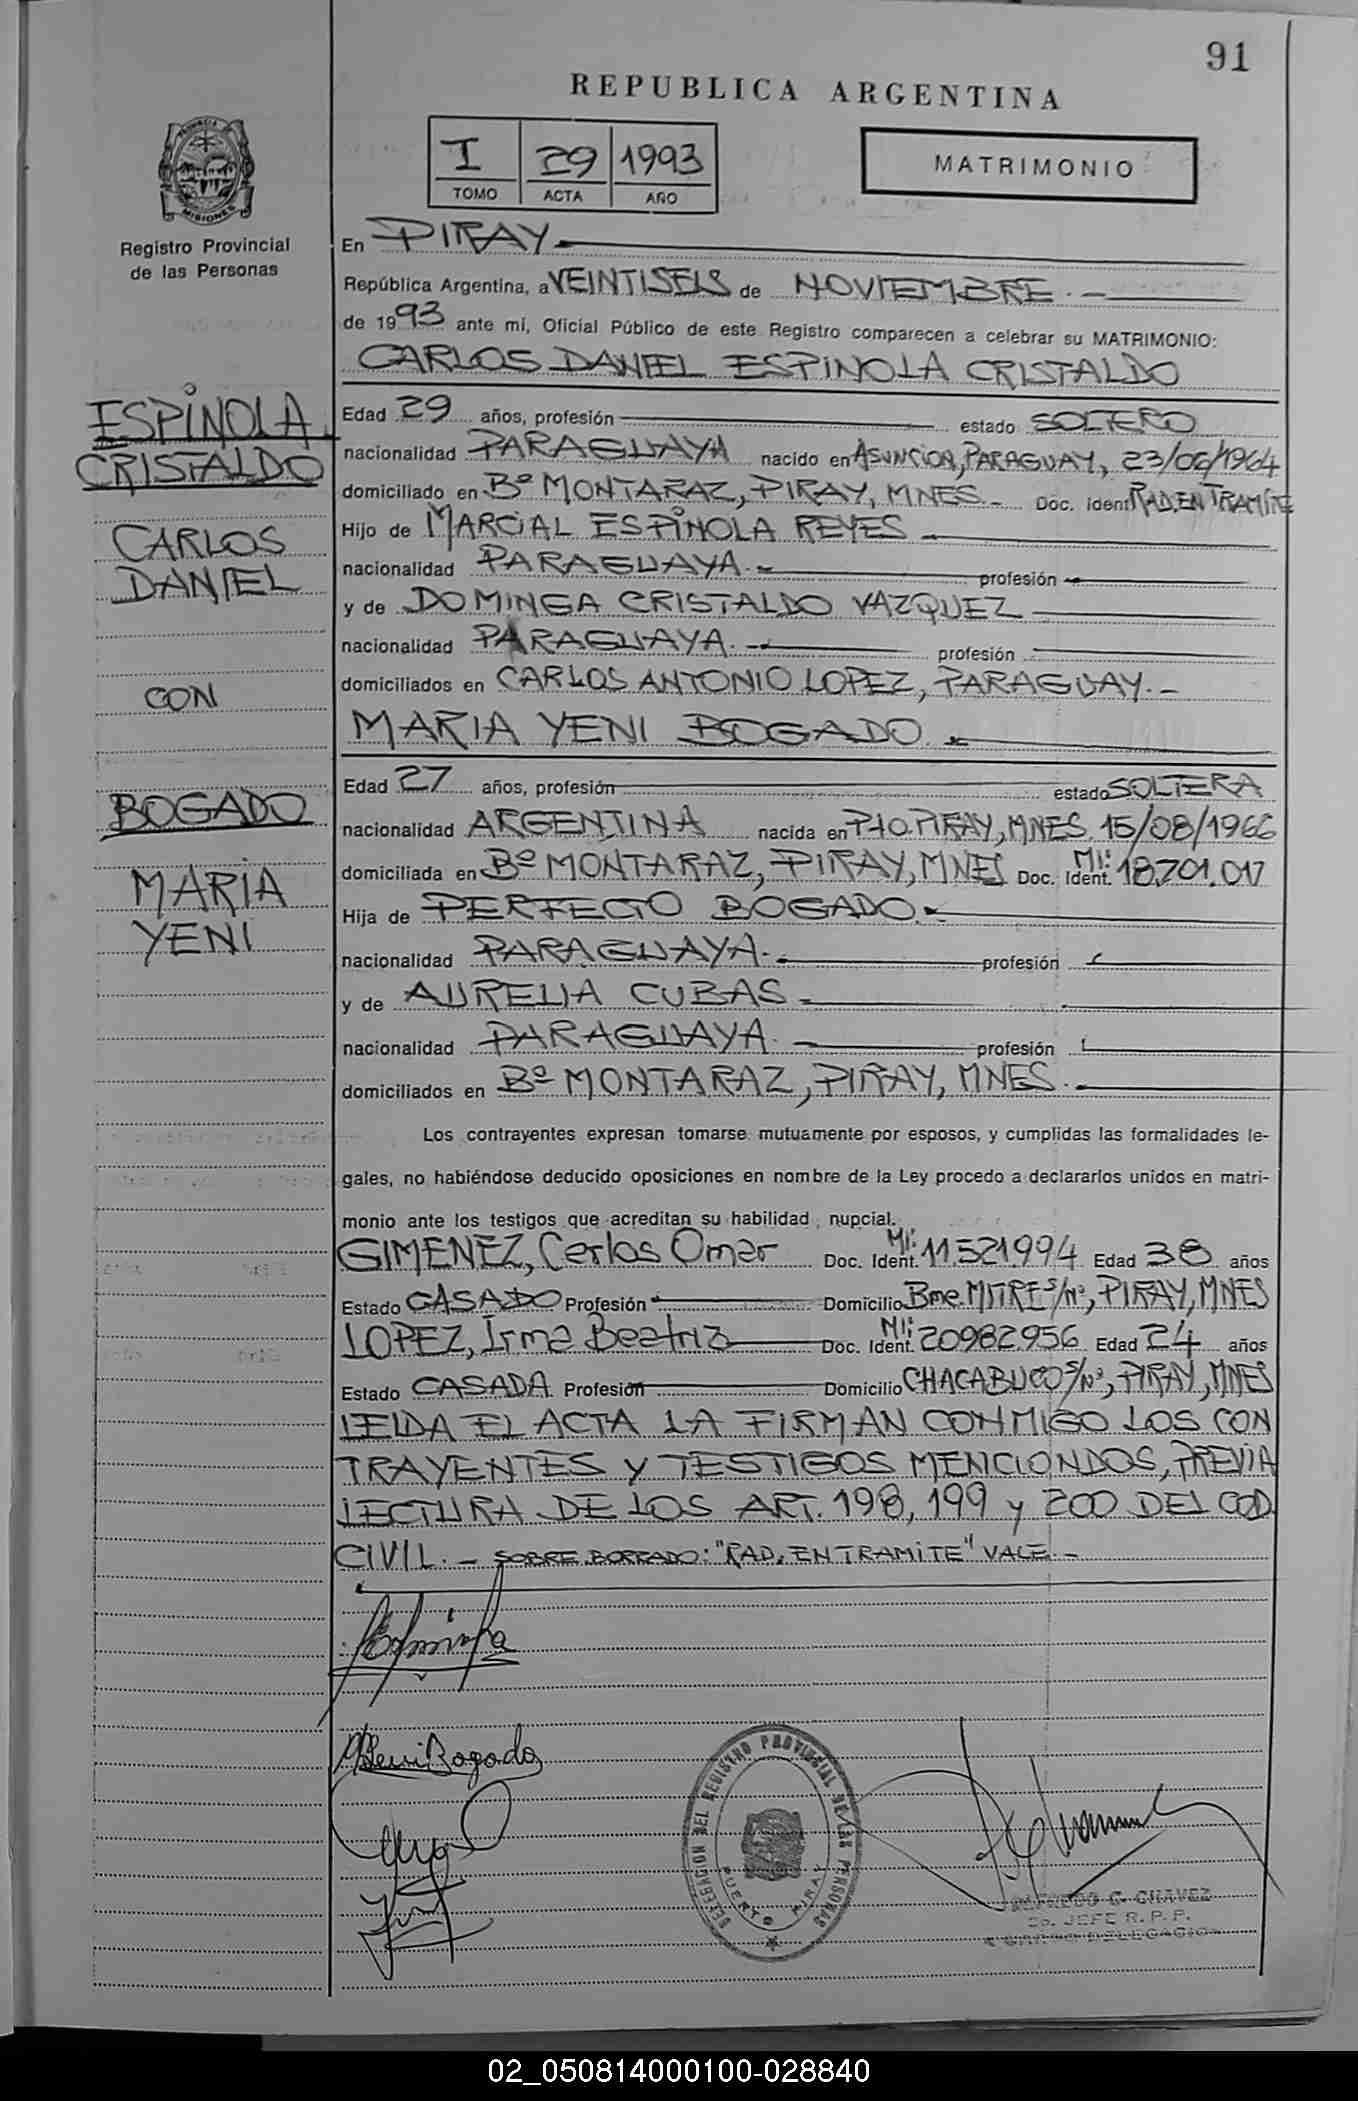 91
REPUBLICA ARGENTINA
I 29 1993
TOMO ACTA AÑO
MATRIMONIO
PROVINCIA
MISIONES
Registro Provincial
de las Personas
En PIRAY
República Argentina, a VEINTISEIS de NOVIEMBRE.-
de 1993 ante mí, Oficial Público de este Registro comparecen a celebrar su MATRIMONIO:
CARLOS DANIEL ESPINOLA CRISTALDO
ESPINOLA
CRISTALDO
CARLOS
DANIEL
CON
BOGADO
MARIA
YENI
Edad 29 años, profesión estado SOLTERO
nacionalidad PARAGUAYA nacido en ASUNCION, PARAGUAY, 23/06/1964
domiciliado en Bº MONTARAZ, PIRAY, MNES- Doc. Ident. RAD. EN TRAMITE
Hijo de MARCIAL ESPINOLA REYES
nacionalidad PARAGUAYA.- profesión
y de DOMINGA CRISTALDO VAZQUEZ
nacionalidad PARAGUAYA.- profesión
domiciliados en CARLOS ANTONIO LOPEZ, PARAGUAY.-
MARIA YENI BOGADO.
Edad 27 años, profesión estado SOLTERA
nacionalidad ARGENTINA nacida en PTO. PIRAY, MNES, 15/08/1966
domiciliada en Bº MONTARAZ, PIRAY, MNES Doc. Ident. MI: 18.701.017
Hija de PERFECTO BOGADO.
nacionalidad PARAGUAYA.- profesión
y de AURELIA CUBAS-
nacionalidad PARAGUAYA. profesión
domiciliados en Bº MONTARAZ, PIRAY, MNES.
Los contrayentes expresan tomarse mutuamente por esposos, y cumplidas las formalidades le-
gales, no habiéndose deducido oposiciones en nombre de la Ley procedo a declararlos unidos en matri-
monio ante los testigos que acreditan su habilidad nupcial.
GIMENEZ, Carlos Omar Doc. Ident. MI: 11.521.994 Edad 38 años
Estado CASADO Profesión Domicilio Bme. MITRE S/Nº, PIRAY, MNES
LOPEZ, Irma Beatriz Doc. Ident. MI: 20.982.956 Edad 24 años
Estado CASADA Profesión Domicilio CHACABUCO S/Nº, PIRAY, MNES
LEIDA EL ACTA LA FIRMAN CONMIGO LOS CON
TRAYENTES Y TESTIGOS MENCIONDOS, PREVIA
LECTURA DE LOS ART. 198, 199 y 200 DEL COD.
CIVIL.- SOBRE BORRADO: "RAD. EN TRAMITE" VALE.-
Yeni Bogado
DELEGACION DEL REGISTRO PROVINCIAL DE LAS PERSONAS
PUERTO PIRAY
ALFREDO G. CHAVEZ
JEFE R. P. P.
DELEGACION
02_050814000100-028840